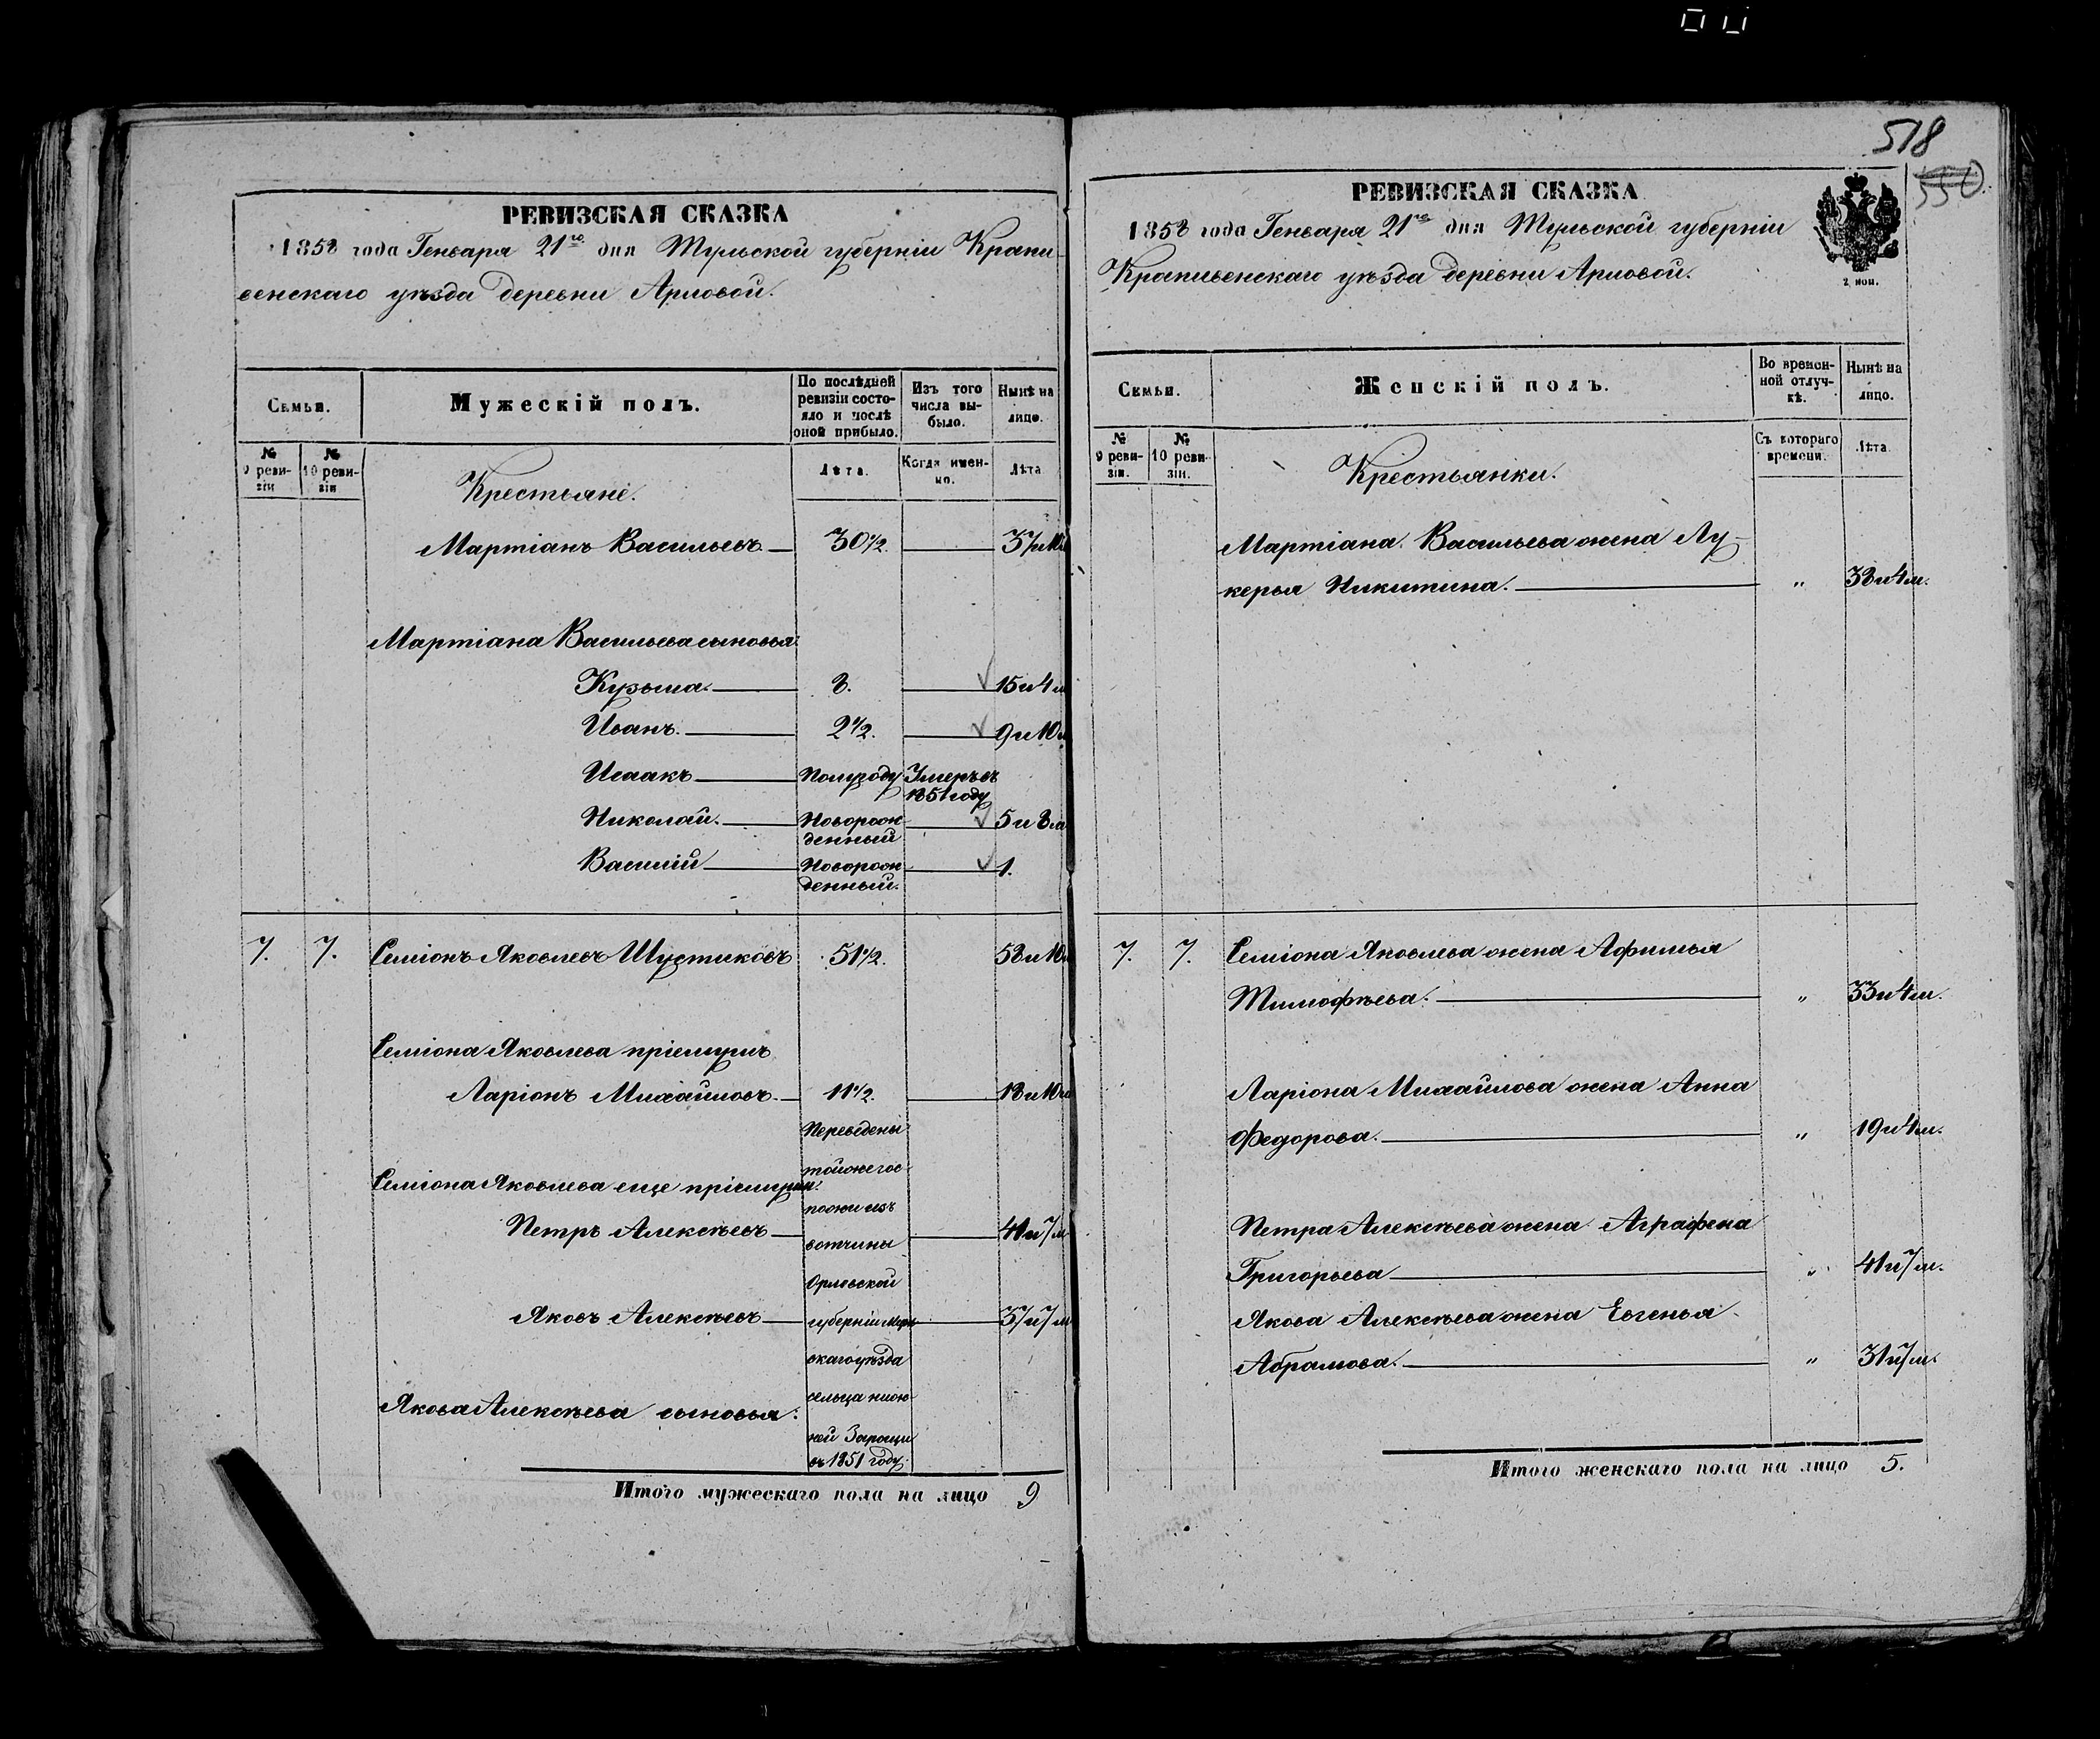 518
550.
РЕВИЗСКАЯ СКАЗКА
1858 года Генваря 21го дня Тульской губерніи Крапи-
венскаго уѣзда деревни Арловой.
Семьи.
Мужескій полъ.
По послѣдней ревизіи состояло и послѣ оной прибыло.
Изъ того числа выбыло.
Нынѣ на лицо.
№ 9 ревизіи
№ 10 ревизіи
Лѣта.
Когда именно.
Лѣта
Крестьяне.
Мартіанъ Васильевъ 30½. 37 и 10м
Мартіана Васильева сыновья:
Кузьма. 8. 15 и 4м
Иванъ. 2½. 9 и 10м
Исаакъ Полугоду Умеръ въ
1851 году
Николай. Новорож- 5 и 8м
денный
Василій Новорож- 1.
денный.
7. 7. Семіонъ Яковлевъ Шустиковъ 51½. 58 и 10м
Семіона Яковлева пріемышъ
Ларіонъ Михайловъ 11½. 18 и 10м
Переведены
тойже гос-
Семіона Яковлева еще пріемыши:
пожи изъ
Петръ Алексѣевъ 41 и 7м
вотчины
Орловской
Яковъ Алексѣевъ губерніи 37 и 7м
скаго уѣзда
сельца ниж-
Якова Алексѣева сыновья:
ней Зарощи
въ 1851 году.
Итого мужескаго пола на лицо 9
РЕВИЗСКАЯ СКАЗКА
1858 года Генваря 21го дня Тульской губерніи
Крапивенскаго уѣзда деревни Арловой.
2 коп.
Семьи.
Женскій полъ.
Во временной отлучкѣ.
Нынѣ на лицо.
№ 9 ревизіи.
№ 10 ревизіи.
Съ котораго времени.
Лѣта.
Крестьянки.
Мартіана Васильева жена Лу-
керья Никитина. " 38 и 4м.
7. 7. Семіона Яковлева жена Афимья
Тимофѣева. " 33 и 4м.
Ларіона Михайлова жена Анна
Федорова. " 19 и 4м.
Петра Алексѣева жена Аграфена
Григорьева " 41 и 7м.
Якова Алексѣева жена Евгенья
Абрамова. " 31 и 7м.
Итого женскаго пола на лицо 5.